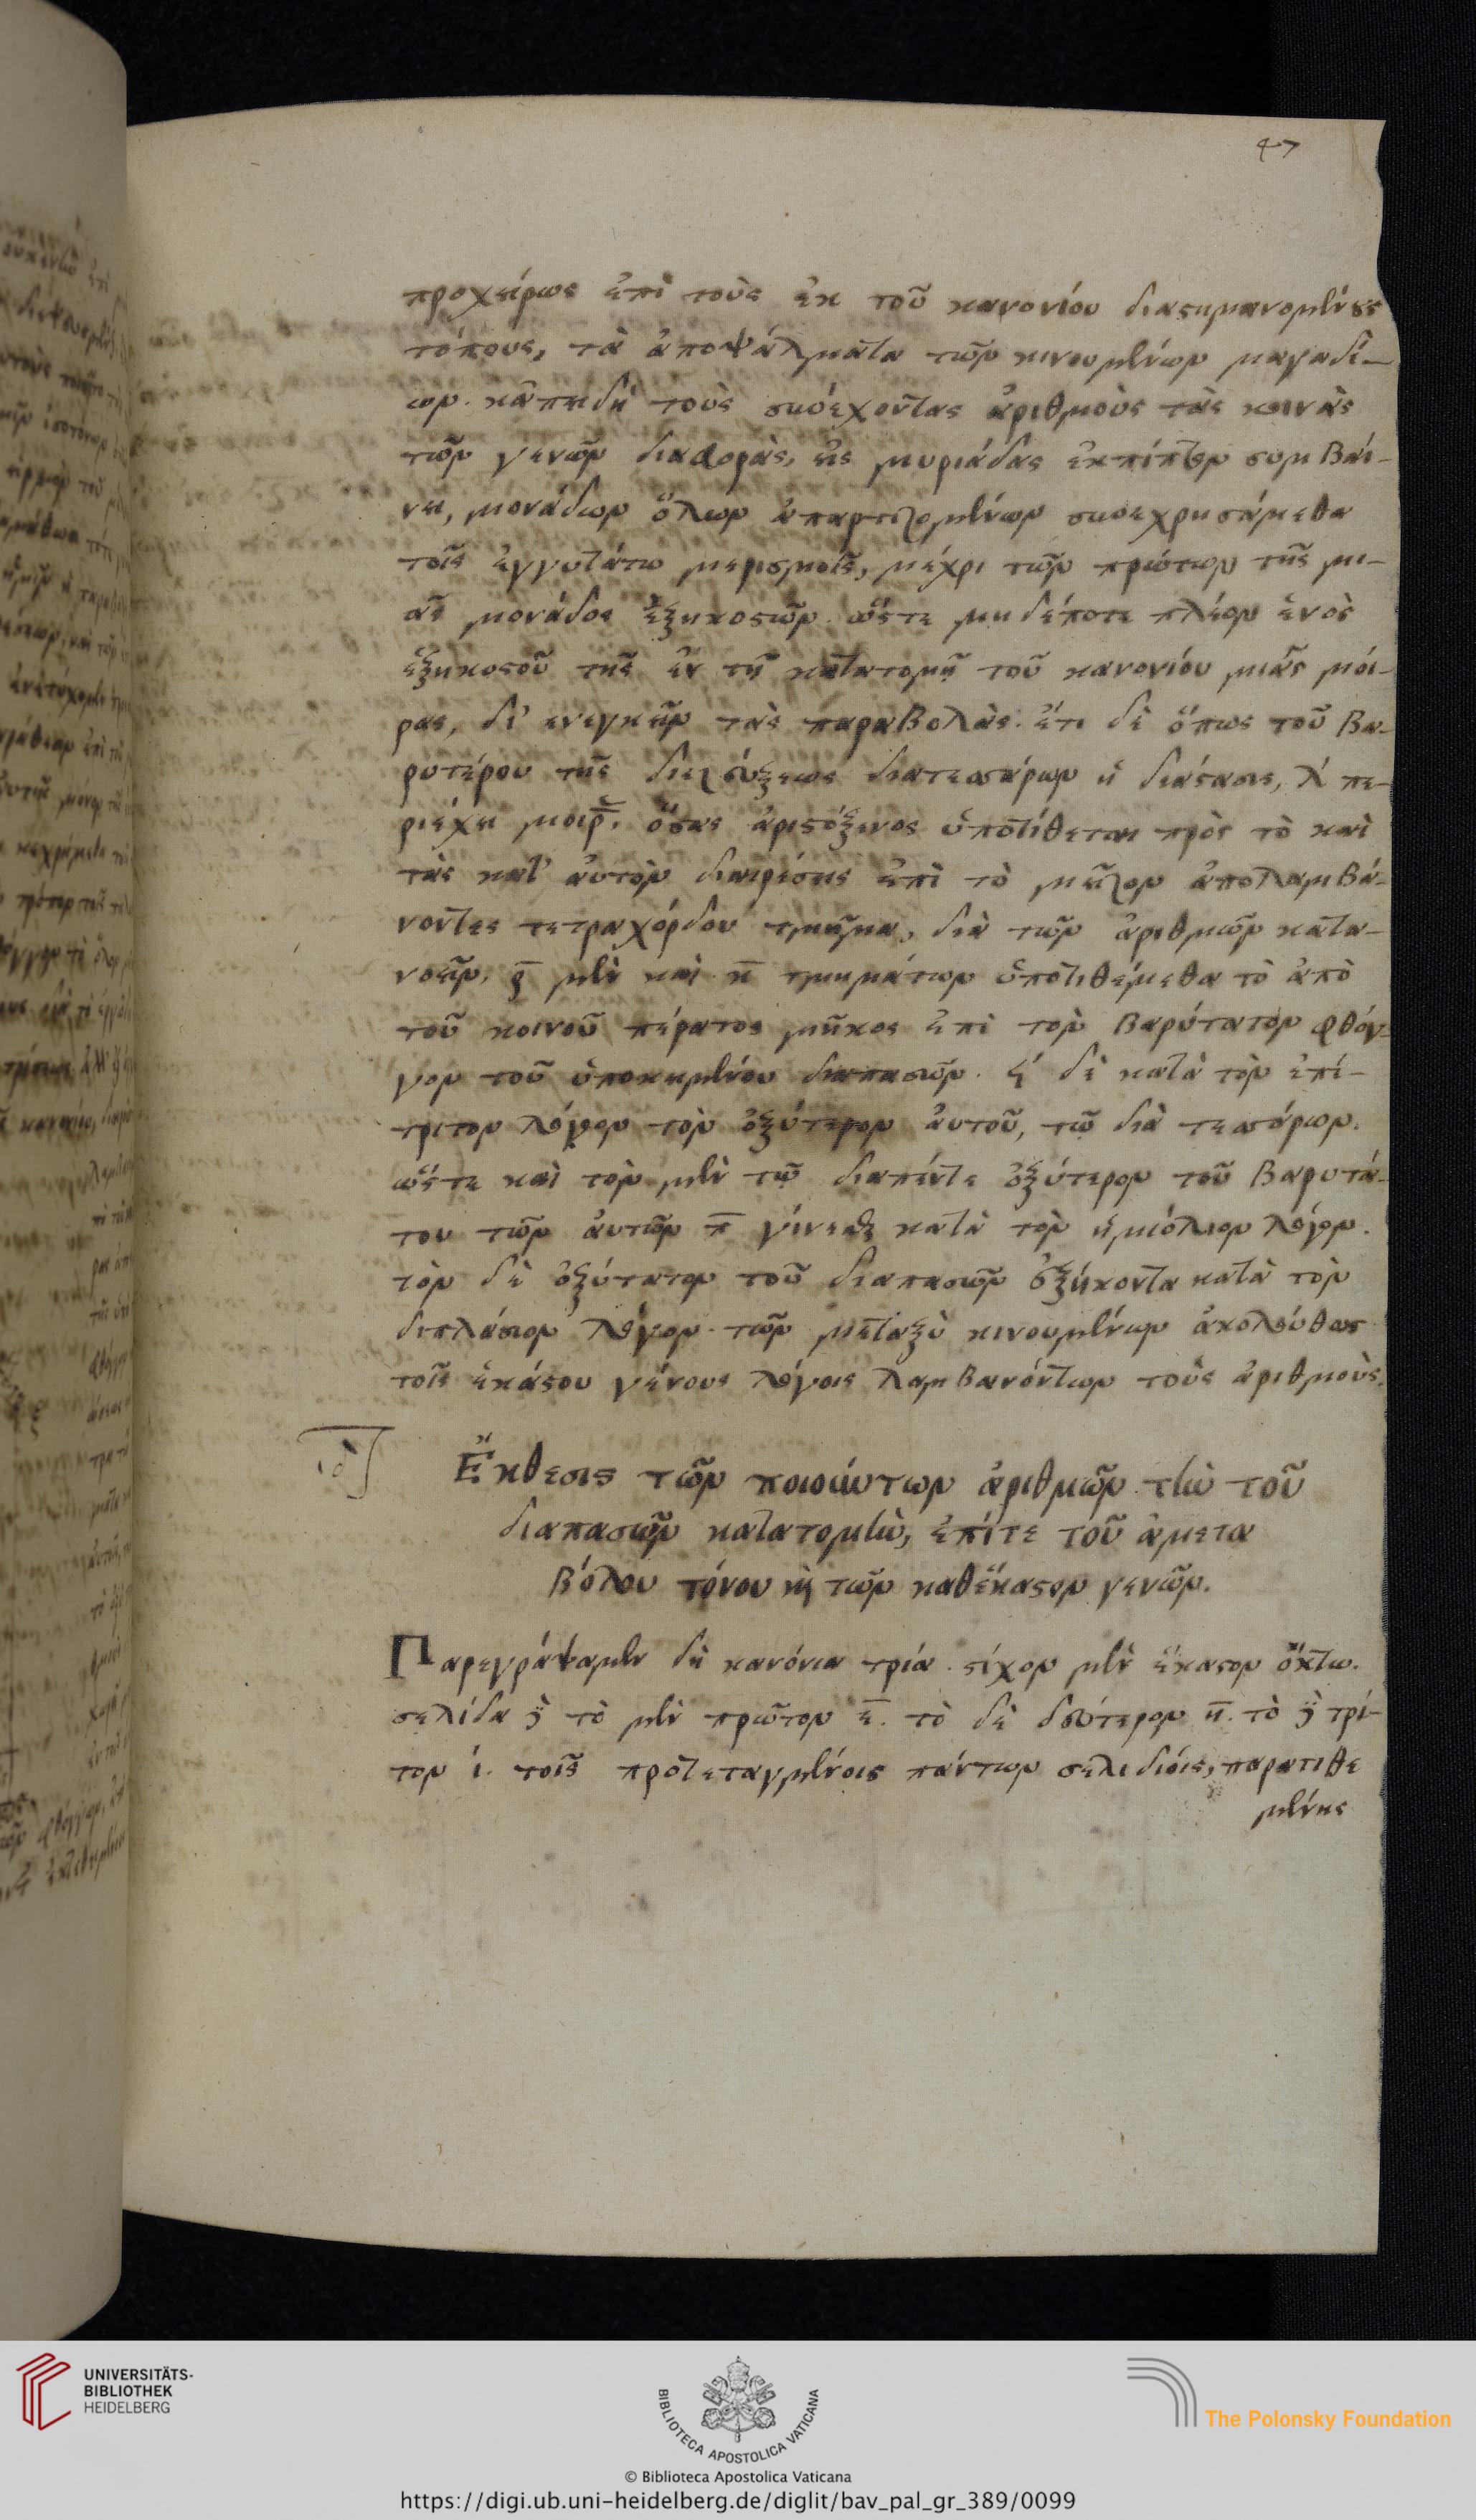 47
προχείρως ἐπὶ τοὺς ἐκ τοῦ κανονίου διασημανομένους
τόπους, τὰ ἀποψάλματα τῶν κινουμένων μαγαδί-
ων. κἀπειδὴ τοὺς συνέχοντας ἀριθμοὺς τὰς κοινὰς
τῶν γενῶν διαφορὰς, εἰς μυριάδας ἐκπίπτειν συμβαί-
νει, μονάδων ὅλων ἀπαρτιζομένων συνεχρησάμεθα
τοῖς ἐγγυτάτω μερισμοῖς, μέχρι τῶν πρώτων τῆς μι-
ᾶς μονάδος ἑξηκοστῶν. ὥστε μηδέποτε πλέον ἑνὸς
ἑξηκοστοῦ τῆς ἐν τῇ κατατομῇ τοῦ κανονίου μιᾶς μοί-
ρας, δι' ενεγκεῖν τὰς παραβολάς. ἔτι δὲ ὅπως τοῦ βα-
ρυτέρου τῆς διεζεύξεως διατεσσάρων ἡ διάστασις, λ πε-
ριέχει μοίρας, ὅσας ἀριστόξενος ὑποτίθεται πρὸς τὸ καὶ
τὰς κατ' αὐτὸν διαιρέσεις ἐπὶ τὸ μεῖζον ἀπολαμβά-
νοντες τετραχόρδου τμῆμα, διὰ τῶν ἀριθμῶν κατα-
νοεῖν, ρ μὲν καὶ κ τμημάτων ὑποτιθέμεθα τὸ ἀπὸ
τοῦ κοινοῦ πέρατος μῆκος ἐπὶ τὸν βαρύτατον φθόγ-
γον τοῦ ὑποκειμένου διαπασῶν. ϟ δὲ κατὰ τὸν ἐπί-
τριτον λόγον τὸν ὀξύτερον αὐτοῦ, τῷ διὰ τεσσάρων.
ὥστε καὶ τὸν μὲν τῷ διαπέντε ὀξύτερον τοῦ βαρυτά-
του τῶν αὐτῶν π γίνεσθαι κατὰ τὸν ἡμιόλιον λόγον.
τὸν δὲ ὀξύτατον τοῦ διαπασῶν ἑξήκοντα κατὰ τὸν
διπλάσιον λόγον. τῶν μεταξὺ κινουμένων ἀκολούθως
τοῖς ἑκάστου γένους λόγοις λαμβανόντων τοὺς ἀριθμοὺς.
ιδ
Ἔκθεσις τῶν ποιούντων ἀριθμῶν τὴν τοῦ
διαπασῶν κατατομὴν, ἐπίτε τοῦ ἀμετα
βόλου τόνου καὶ τῶν καθέκαστον γενῶν.
Παρεγράψαμεν δὴ κανόνια τρία. στίχον μὲν ἕκαστον ὄκτω.
σελίδα δὲ τὸ μὲν πρῶτον ε. τὸ δὲ δεύτερον η. τὸ δὲ τρί-
τον ι. τοῖς προτεταγμένοις πάντων σελιδίοις, παρατιθε
μένης
UNIVERSITÄTS-
BIBLIOTHEK
HEIDELBERG
BIBLIOTECA APOSTOLICA VATICANA
The Polonsky Foundation
© Biblioteca Apostolica Vaticana
https://digi.ub.uni-heidelberg.de/diglit/bav_pal_gr_389/0099